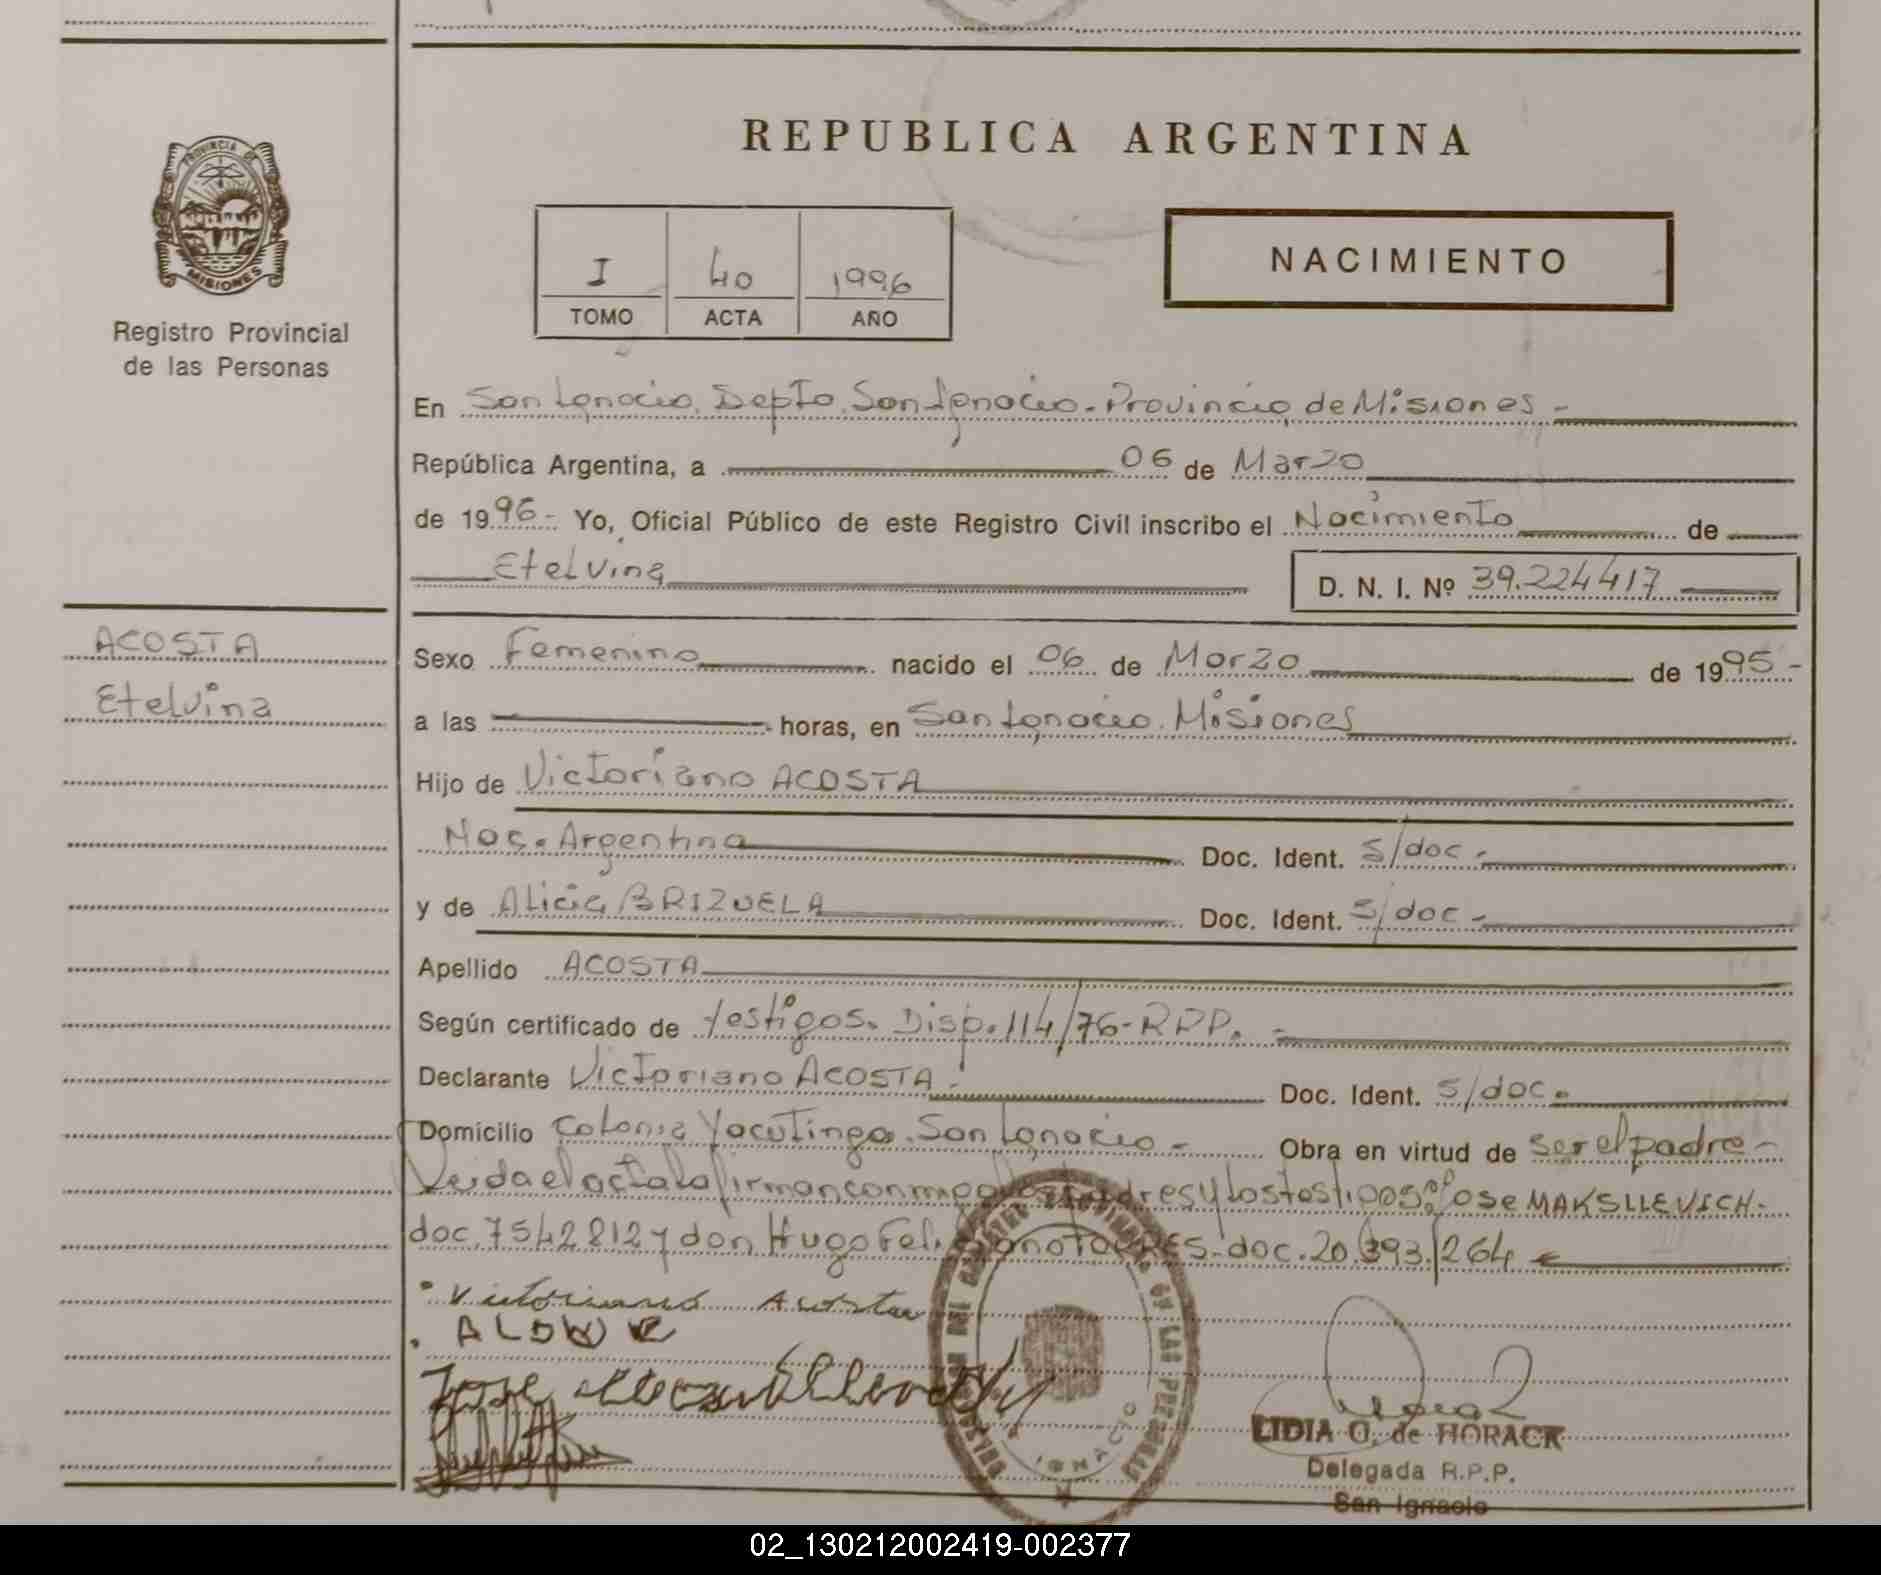 REPUBLICA ARGENTINA
PROVINCIA DE
MISIONES
Registro Provincial
de las Personas
I 40 1996
TOMO ACTA AÑO
NACIMIENTO
En San Ignacio. Depto. San Ignacio - Provincia de Misiones -
República Argentina, a 06 de Marzo
de 1996 - Yo, Oficial Público de este Registro Civil inscribo el Nacimiento de
Etelvina D. N. I. Nº 39.224417
ACOSTA
Etelvina
Sexo Femenino nacido el 06 de Marzo de 1995 -
a las horas, en San Ignacio. Misiones
Hijo de Victoriano ACOSTA
Nac. Argentina Doc. Ident. S/doc -
y de Alicia BRIZUELA Doc. Ident. S/doc -
Apellido ACOSTA
Según certificado de testigos. Disp. 114/76-RPP. -
Declarante Victoriano ACOSTA - Doc. Ident. S/doc.
Domicilio Colonia Yacutinga. San Ignacio - Obra en virtud de ser el padre -
Leida el acta la firman conmigo padres y los testigos: Jose MAKSLLEVICH -
doc. 7542812 y don Hugo TORRES - doc. 20.393.264
Victoriano Acosta
Jose
DE LAS PERSONAS
IGNACIO
LIDIA O. de HORACK
Delegada R.P.P.
San Ignacio
02_130212002419-002377